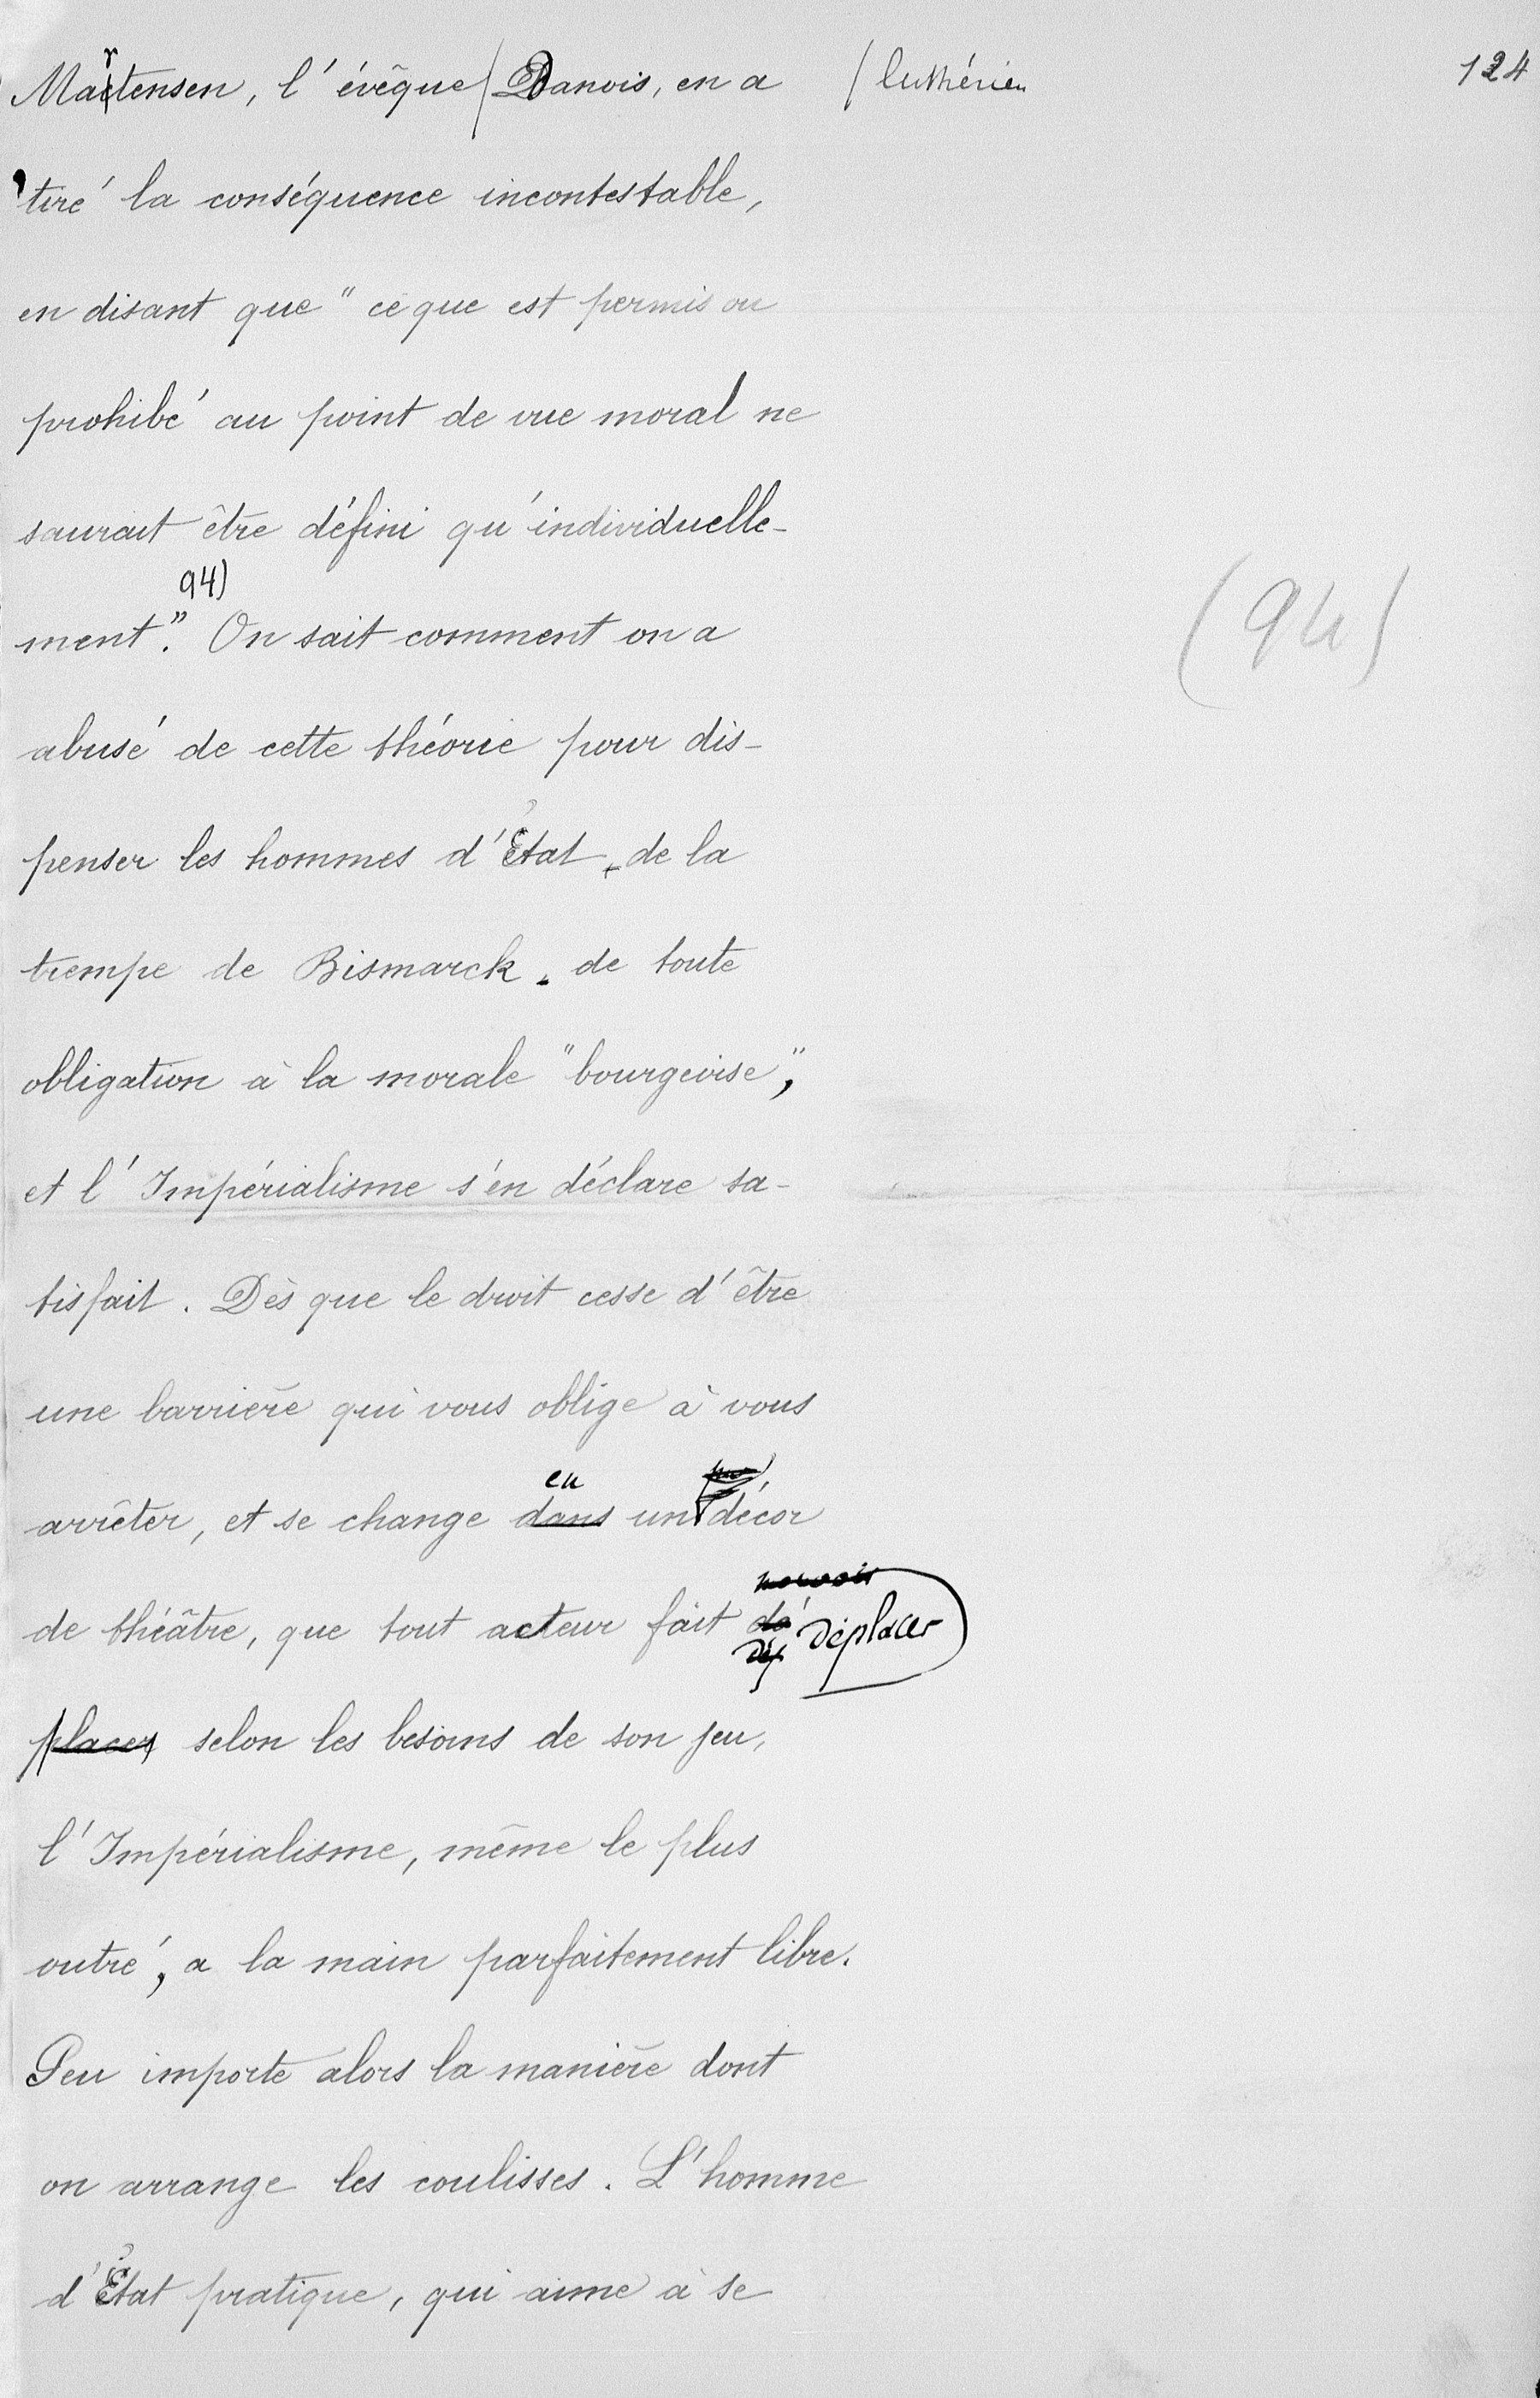 124
Martensen, l'évêque / Danois, en a / luthérien
tiré la conséquence incontestable,
en disant que "ce que est permis ou
prohibé au point de vue moral ne
saurait être défini qu'individuelle-
94)
ment." On sait comment on a
(94)
abusé de cette théorie pour dis-
penser les hommes d'État, de la
trempe de Bismarck, de toute
obligation à la morale "bourgeoise",
et l'Impérialisme s'en déclare sa-
tisfait. Dès que le droit cesse d'être
une barrière qui vous oblige à vous
en
arrêter, et se change dans un décor
de théâtre, que tout acteur fait dé déplacer
placer selon les besoins de son jeu,
l'Impérialisme, même le plus
outré, a la main parfaitement libre.
Peu importe alors la manière dont
on arrange les coulisses. L'homme
d'État pratique, qui aime à se